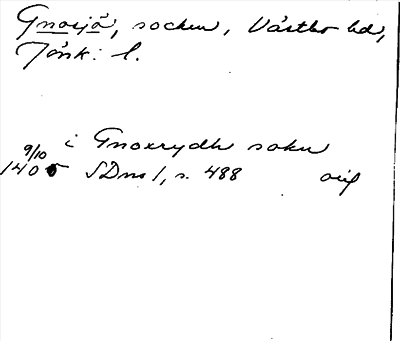 Gnosjö, socken, Västbo hd,
Jönk: l.
i Gnoxrydh sokn
9/10
1405 SDns 1, s. 488 orig